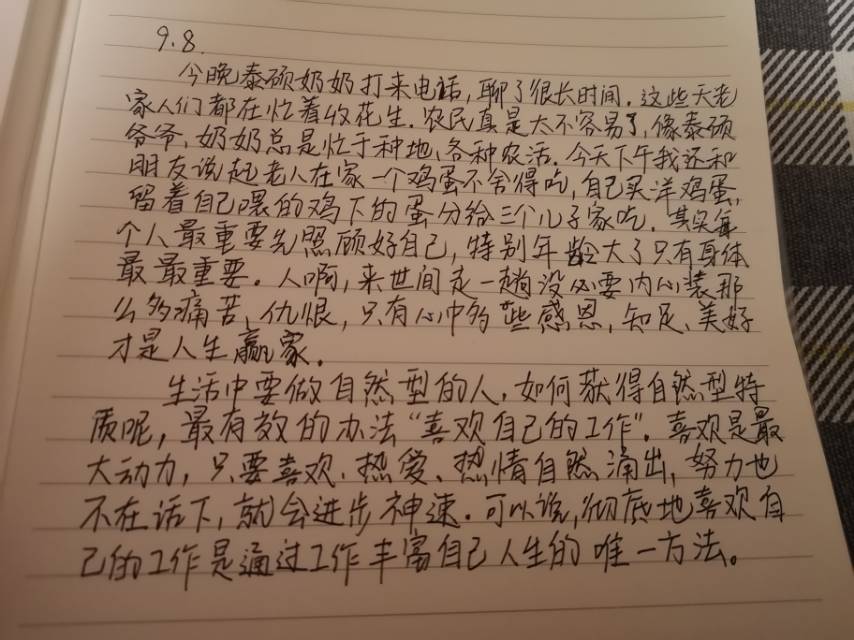 9.8.
今晚泰硕奶奶打来电话,聊了很长时间.这些天老
家人们都在忙着收花生.农民真是太不容易了,像泰硕
爷爷,奶奶总是忙于种地、各种农活.今天下午我还和
朋友说起老人在家一个鸡蛋不舍得吃,自己买洋鸡蛋,
留着自己喂的鸡下的蛋分给三个儿子家吃.其实每
个人最重要先照顾好自己,特别年龄大了只有身体
最最重要。人啊,来世间走一趟没必要内心装那
么多痛苦、仇恨,只有心中多些感恩,知足、美好
才是人生赢家.
生活中要做自然型的人,如何获得自然型特
质呢,最有效的办法“喜欢自己的工作”.喜欢是最
大动力,只要喜欢、热爱、热情自然涌出,努力也
不在话下,就会进步神速.可以说,彻底地喜欢自
己的工作是通过工作丰富自己人生的唯一方法。